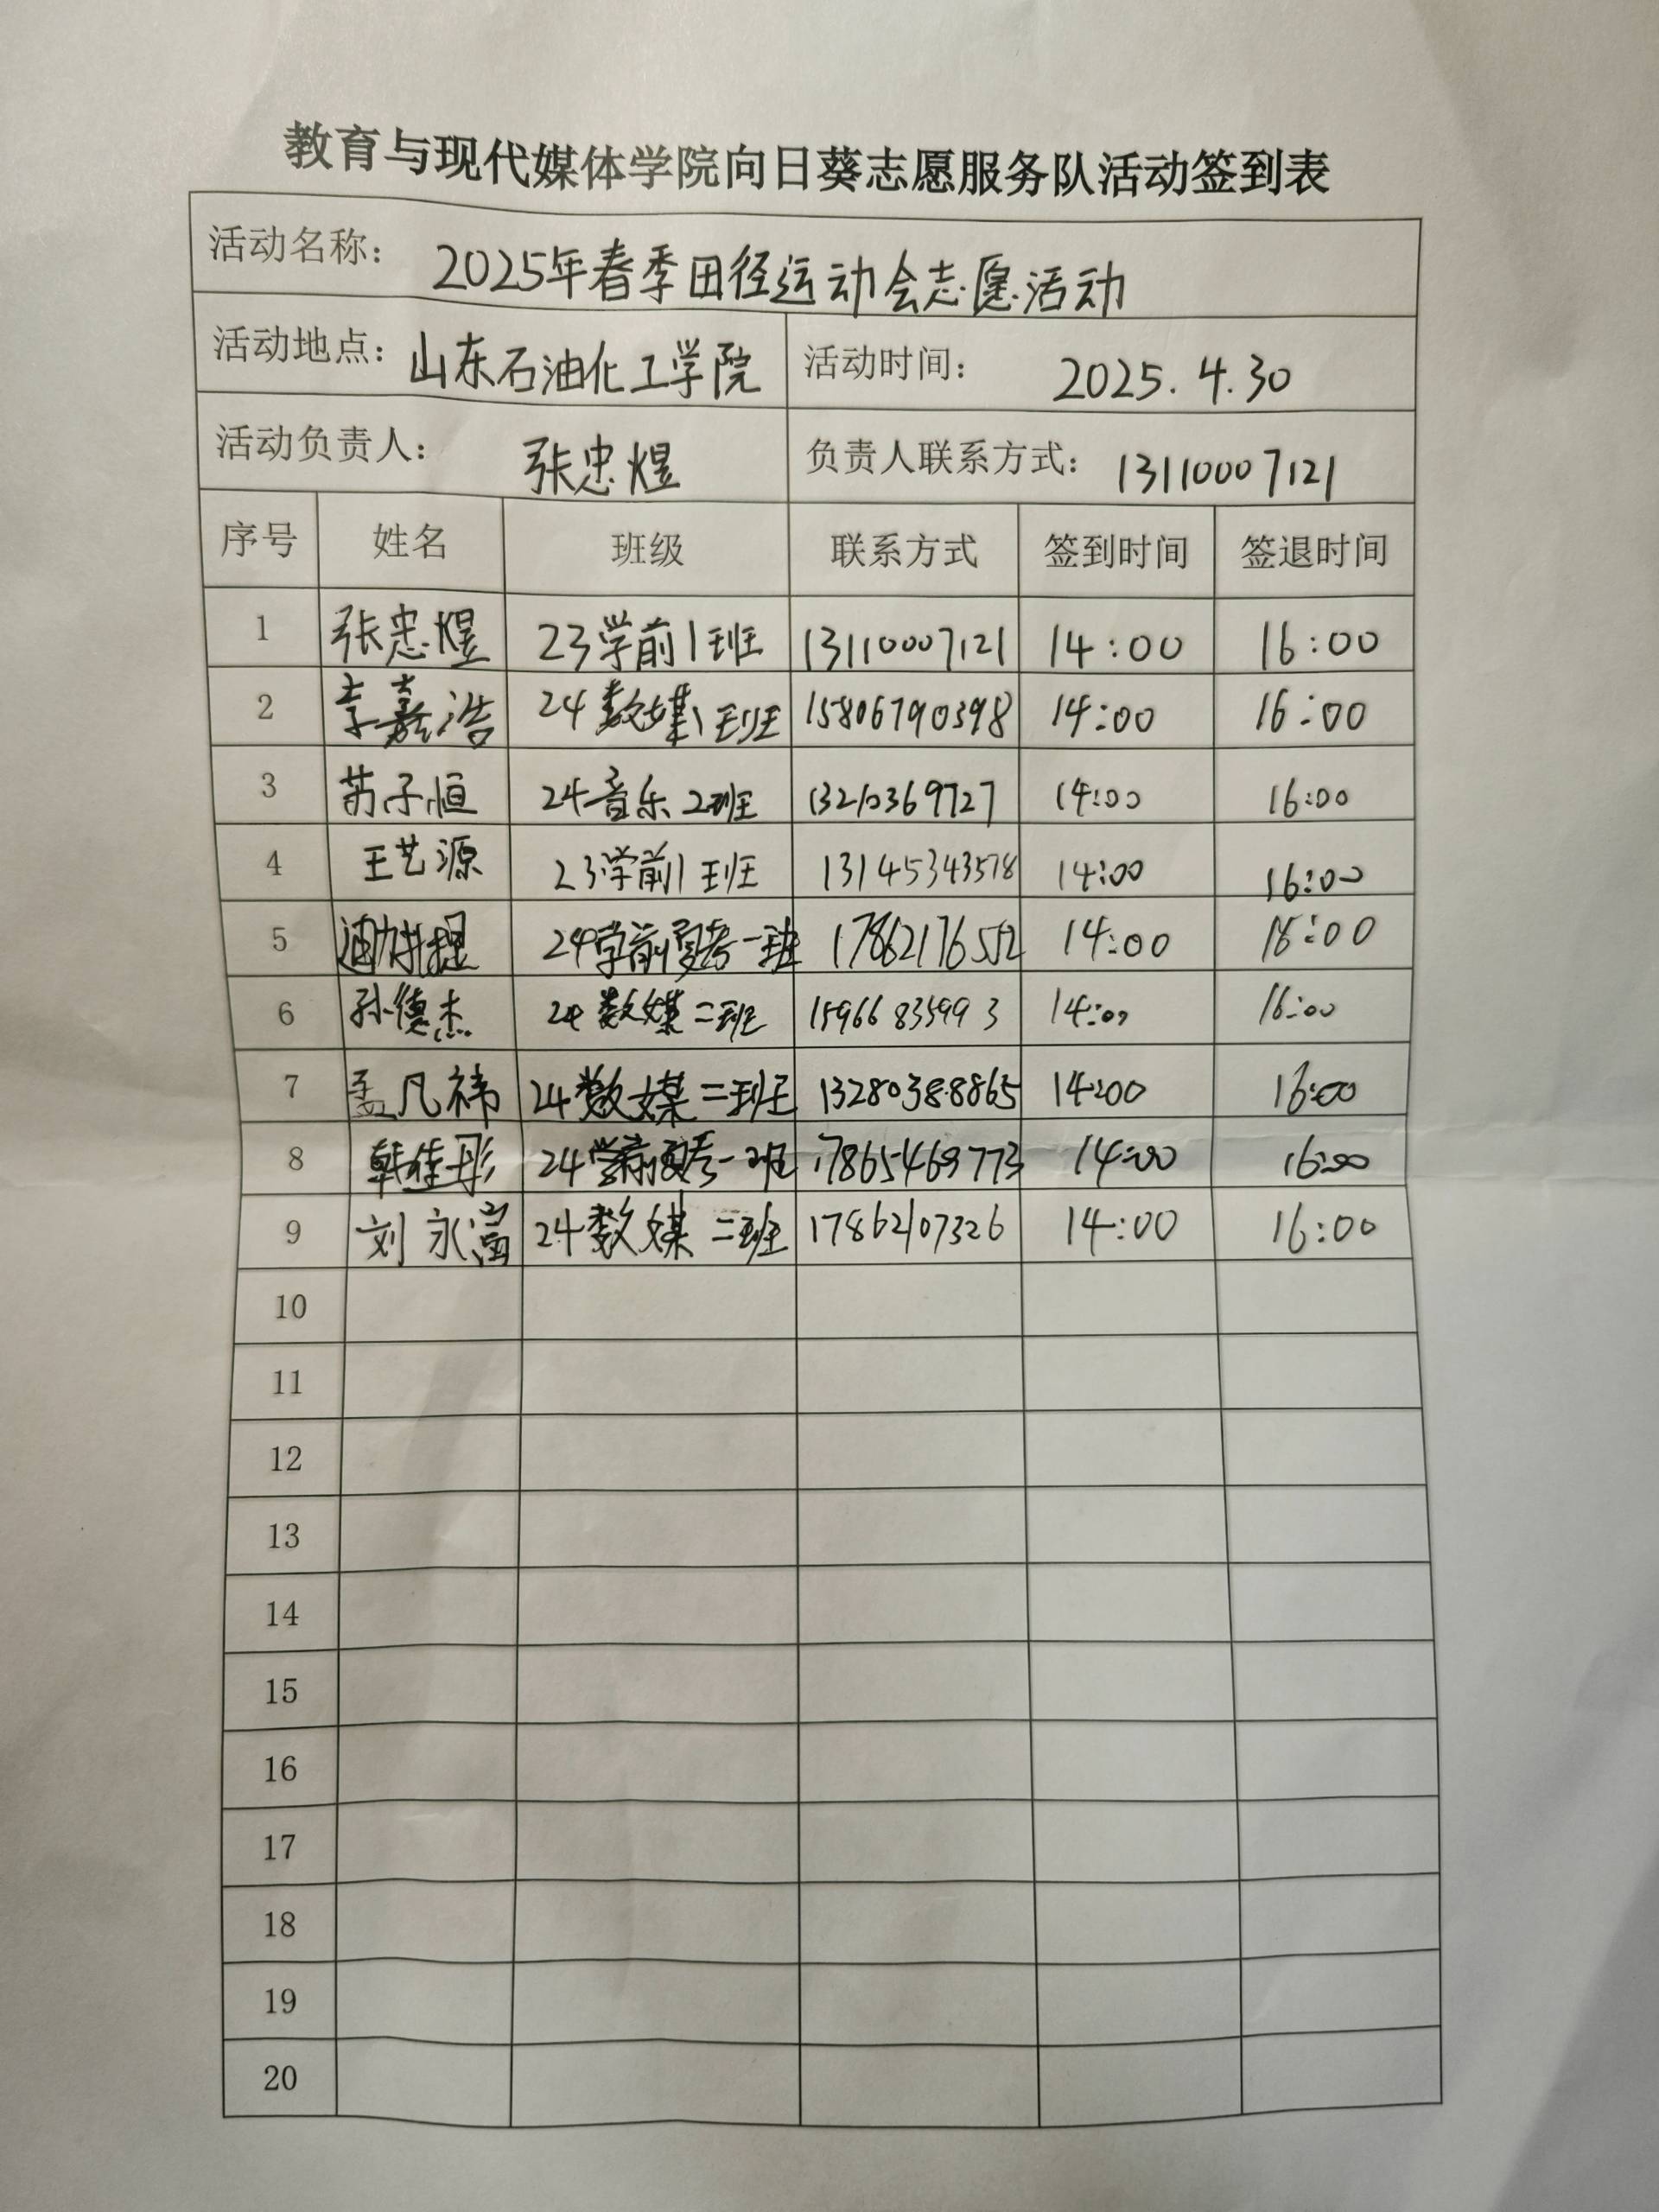 教育与现代媒体学院向日葵志愿服务队活动签到表
活动名称： 2025年春季田径运动会志愿活动
活动地点： 山东石油化工学院 活动时间： 2025.4.30
活动负责人： 张忠煜 负责人联系方式： 13110007121
序号 姓名 班级 联系方式 签到时间 签退时间
1 张忠煜 23学前1班 13110007121 14:00 16:00
2 李嘉浩 24数媒1班 15806790398 14:00 16:00
3 苏子恒 24音乐2班 13210369727 14:00 16:00
4 王艺源 23学前1班 13145343578 14:00 16:00
5 24学前夏考一班 17862176552 14:00 16:00
6 孙德杰 24数媒二班 15966835993 14:00 16:00
7 孟凡祎 24数媒二班 13280388865 14:00 16:00
8 韩佳彤 24学前夏考一班 17865469773 14:00 16:00
9 刘永富 24数媒二班 17862107326 14:00 16:00
10
11
12
13
14
15
16
17
18
19
20